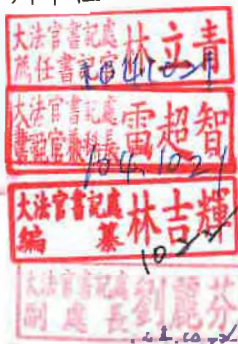 大法官書記處
薦任書記官
林立青
1041021
大法官書記處
書記官兼科長
雷超智
104.1021
大法官書記處
編纂
林吉輝
大法官書記處
副處長
劉麗芬